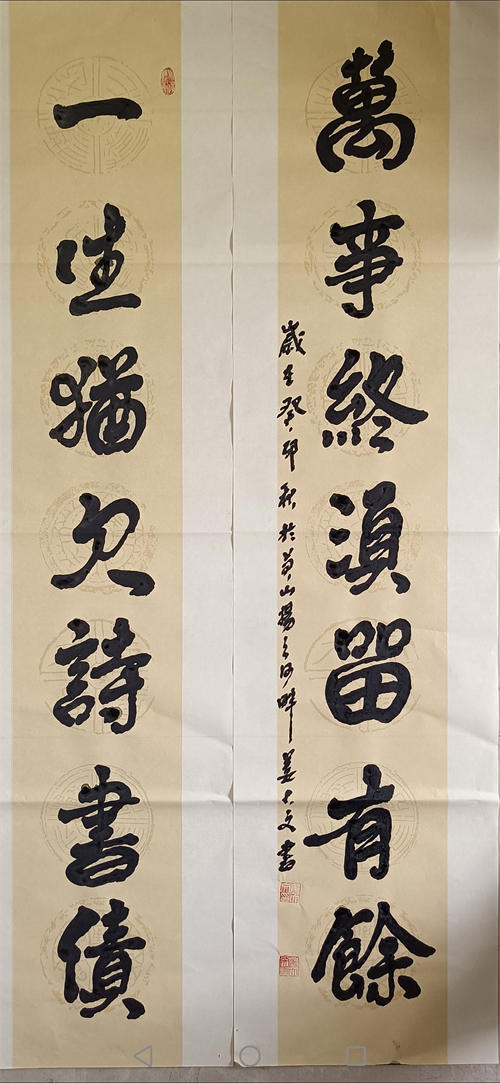 一生猶欠詩書債
萬事終湏留有餘
歲在癸卯秋於黃山揚之河畔姜大文書